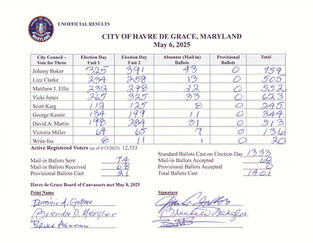 UNOFFICIAL RESULTS
CITY OF HAVRE DE GRACE, MARYLAND
May 6, 2025
City Council – Vote for Three Election Day Unit 1 Election Day Unit 2 Absentee (Mail-in) Ballots Provisional Ballots Total
Johnny Boker 325 391 43 0 759
Lizz Clarke 234 258 13 0 505
Matthew J. Ellis 232 298 22 0 552
Vicki Jones 265 325 33 0 623
Scott Kurg 112 125 8 0 245
George Kannic 134 199 11 0 344
David A. Martin 198 284 31 0 513
Victoria Miller 64 65 7 0 136
Write-Ins 8 11 1 0 20
Active Registered Voters (as of 4/15/2025) 12,333
Mail-in Ballots Sent 74
Mail-in Ballots Received 68
Provisional Ballots
Standard Ballots Cast on Election Day 1333
Mail-in Ballots Accepted 68
Provisional Ballots Accepted 0
Total Ballots Cast 1401
Havre de Grace Board of Canvassers met May 8, 2025
Print Name Signature